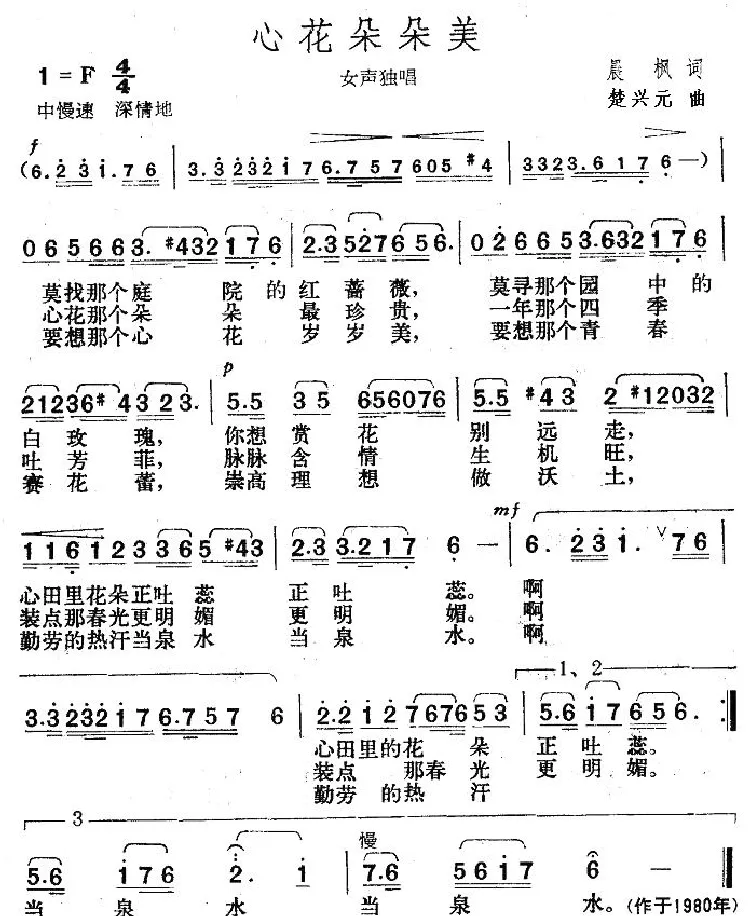 心花朵朵美
1=F 4/4 女声独唱 晨枫词
中慢速 深情地 楚兴元曲
f
(6. 2 3 1. 7 6 | 3. 3 2 3 2 1 7 6. 7 5 7 6 0 5 #4 | 3 3 2 3. 6 1 7 6 —) |
0 6 5 6 6 3. #4 3 2 1 7 6 | 2. 3 5 2 7 6 5 6. | 0 2 6 6 5 3. 6 3 2 1 7 6 |
莫找那个庭院的红蔷薇, 莫寻那个园中的
心花那个朵朵最珍贵, 一年那个四季
要想那个心花岁岁美, 要想那个青春
p
2 1 2 3 6 #4 3 2 3. | 5. 5 3 5 6 5 6 0 7 6 | 5. 5 #4 3 2 #1 2 0 3 2 |
白玫瑰, 你想赏花别远走,
吐芳菲, 脉脉含情生机旺,
赛花蕾, 崇高理想做沃土,
mf
1 1 6 1 2 3 3 6 5 #4 3 | 2. 3 3. 2 1 7 6 — | 6. 2 3 1. V 7 6 |
心田里花朵正吐蕊 正吐蕊。啊
装点那春光更明媚 更明媚。啊
勤劳的热汗当泉水 当泉水。啊
1、2
3. 3 2 3 2 1 7 6. 7 5 7 6 | 2. 2 1 2 7 6 7 6 5 3 | 5. 6 1 7 6 5 6. :|
心田里的花朵 正吐蕊。
装点那春光 更明媚。
勤劳的热汗
3
慢
5. 6 1 7 6 2. 1 | 7. 6 5 6 1 7 6 — |
当泉水 当泉水。(作于1980年)